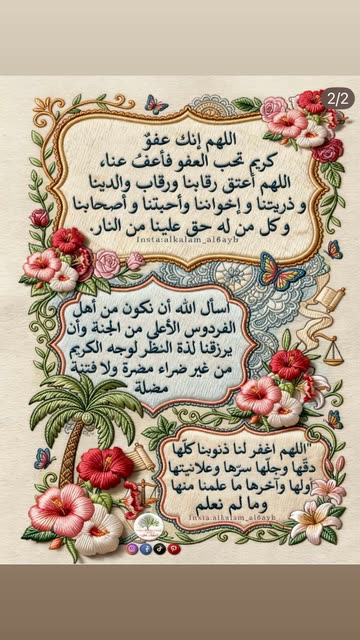 2/2
اللهم إنك عفوٌ
كريم تحب العفو فأعفُ عناء
اللهم أعتق رقابنا ورقاب والدينا
و ذريتنا و إخواننا وأحبتنا و أصحابنا
و كل من له حق علينا من النار.
Insta:alkalam_al6ayb
أسأل الله أن نكون من أهل
الفردوس الأعلى من الجنة وأن
يرزقنا لذة النظر لوجه الكريم
من غير ضراء مضرة ولا فتنة
مضلة
اللهم اغفر لنا ذنوبنا كلّها
دقّها وجلّها سرّها وعلانيتها
أولها وآخرها ما علمنا منها
وما لم نعلم
Insta:alkalam_al6ayb